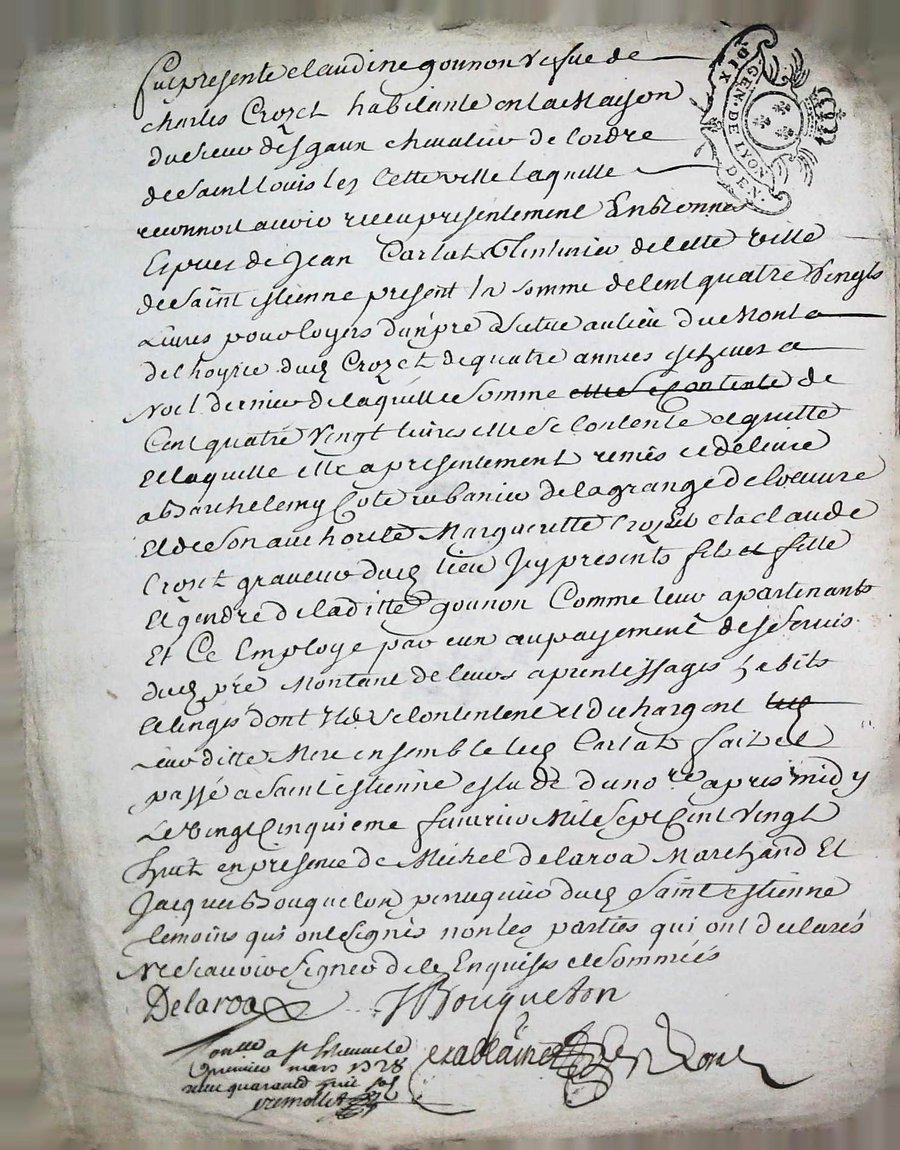 fut presente claudine gounon vefue de
charles Crozet habitante en la Maison
du sieur desgaux chevalier de l'ordre
de saint Louis lez Cette ville laquelle
reconnoit avoir receu presentement En bonnes
Espèces de Jean Carlat Teinturier de cette ville
de saint estienne present la somme de Cent quatre vingts
Livres pour loyers d'un pré situé au lieu du Mont
de l'hoyrie dud Crozet de quatre années echeues a
Noel dernier de laquelle somme elle se contente de
Cent quatre vingt livres elle se contente et quitte
et laquelle elle a presentement remis et delivré
a Barthelemy Cote rubanier de la grange de loeuvre
et de son authorité Margueritte Crozet et a claude
Crozet graveur dud lieu Icy presents fils et fille
et gendre de laditte gounon Comme leur apartenants
Et Ce Employe par eux au payement des
dud pré Montant de leurs aprentissages habits
et linges dont ils se contentent et dechargent lad
leur ditte Mere ensemble led Carlat fait et
passé a saint estienne estude du nore apres midy
Le vingt cinquieme fevrier Mil sept Cent vingt
huit en presence de Michel delaroa Marchand Et
Jacques Bouqueton peruquier dud saint estienne
temoins qui ont signés non les parties qui ont declarés
Ne sçavoir signer de ce Enquises et sommées
Delaroa J Bouqueton
Conllé a st Etienne le
premier mars 1728
receu quarante huit sols
DIX
GEN. DE LYON
DEN.